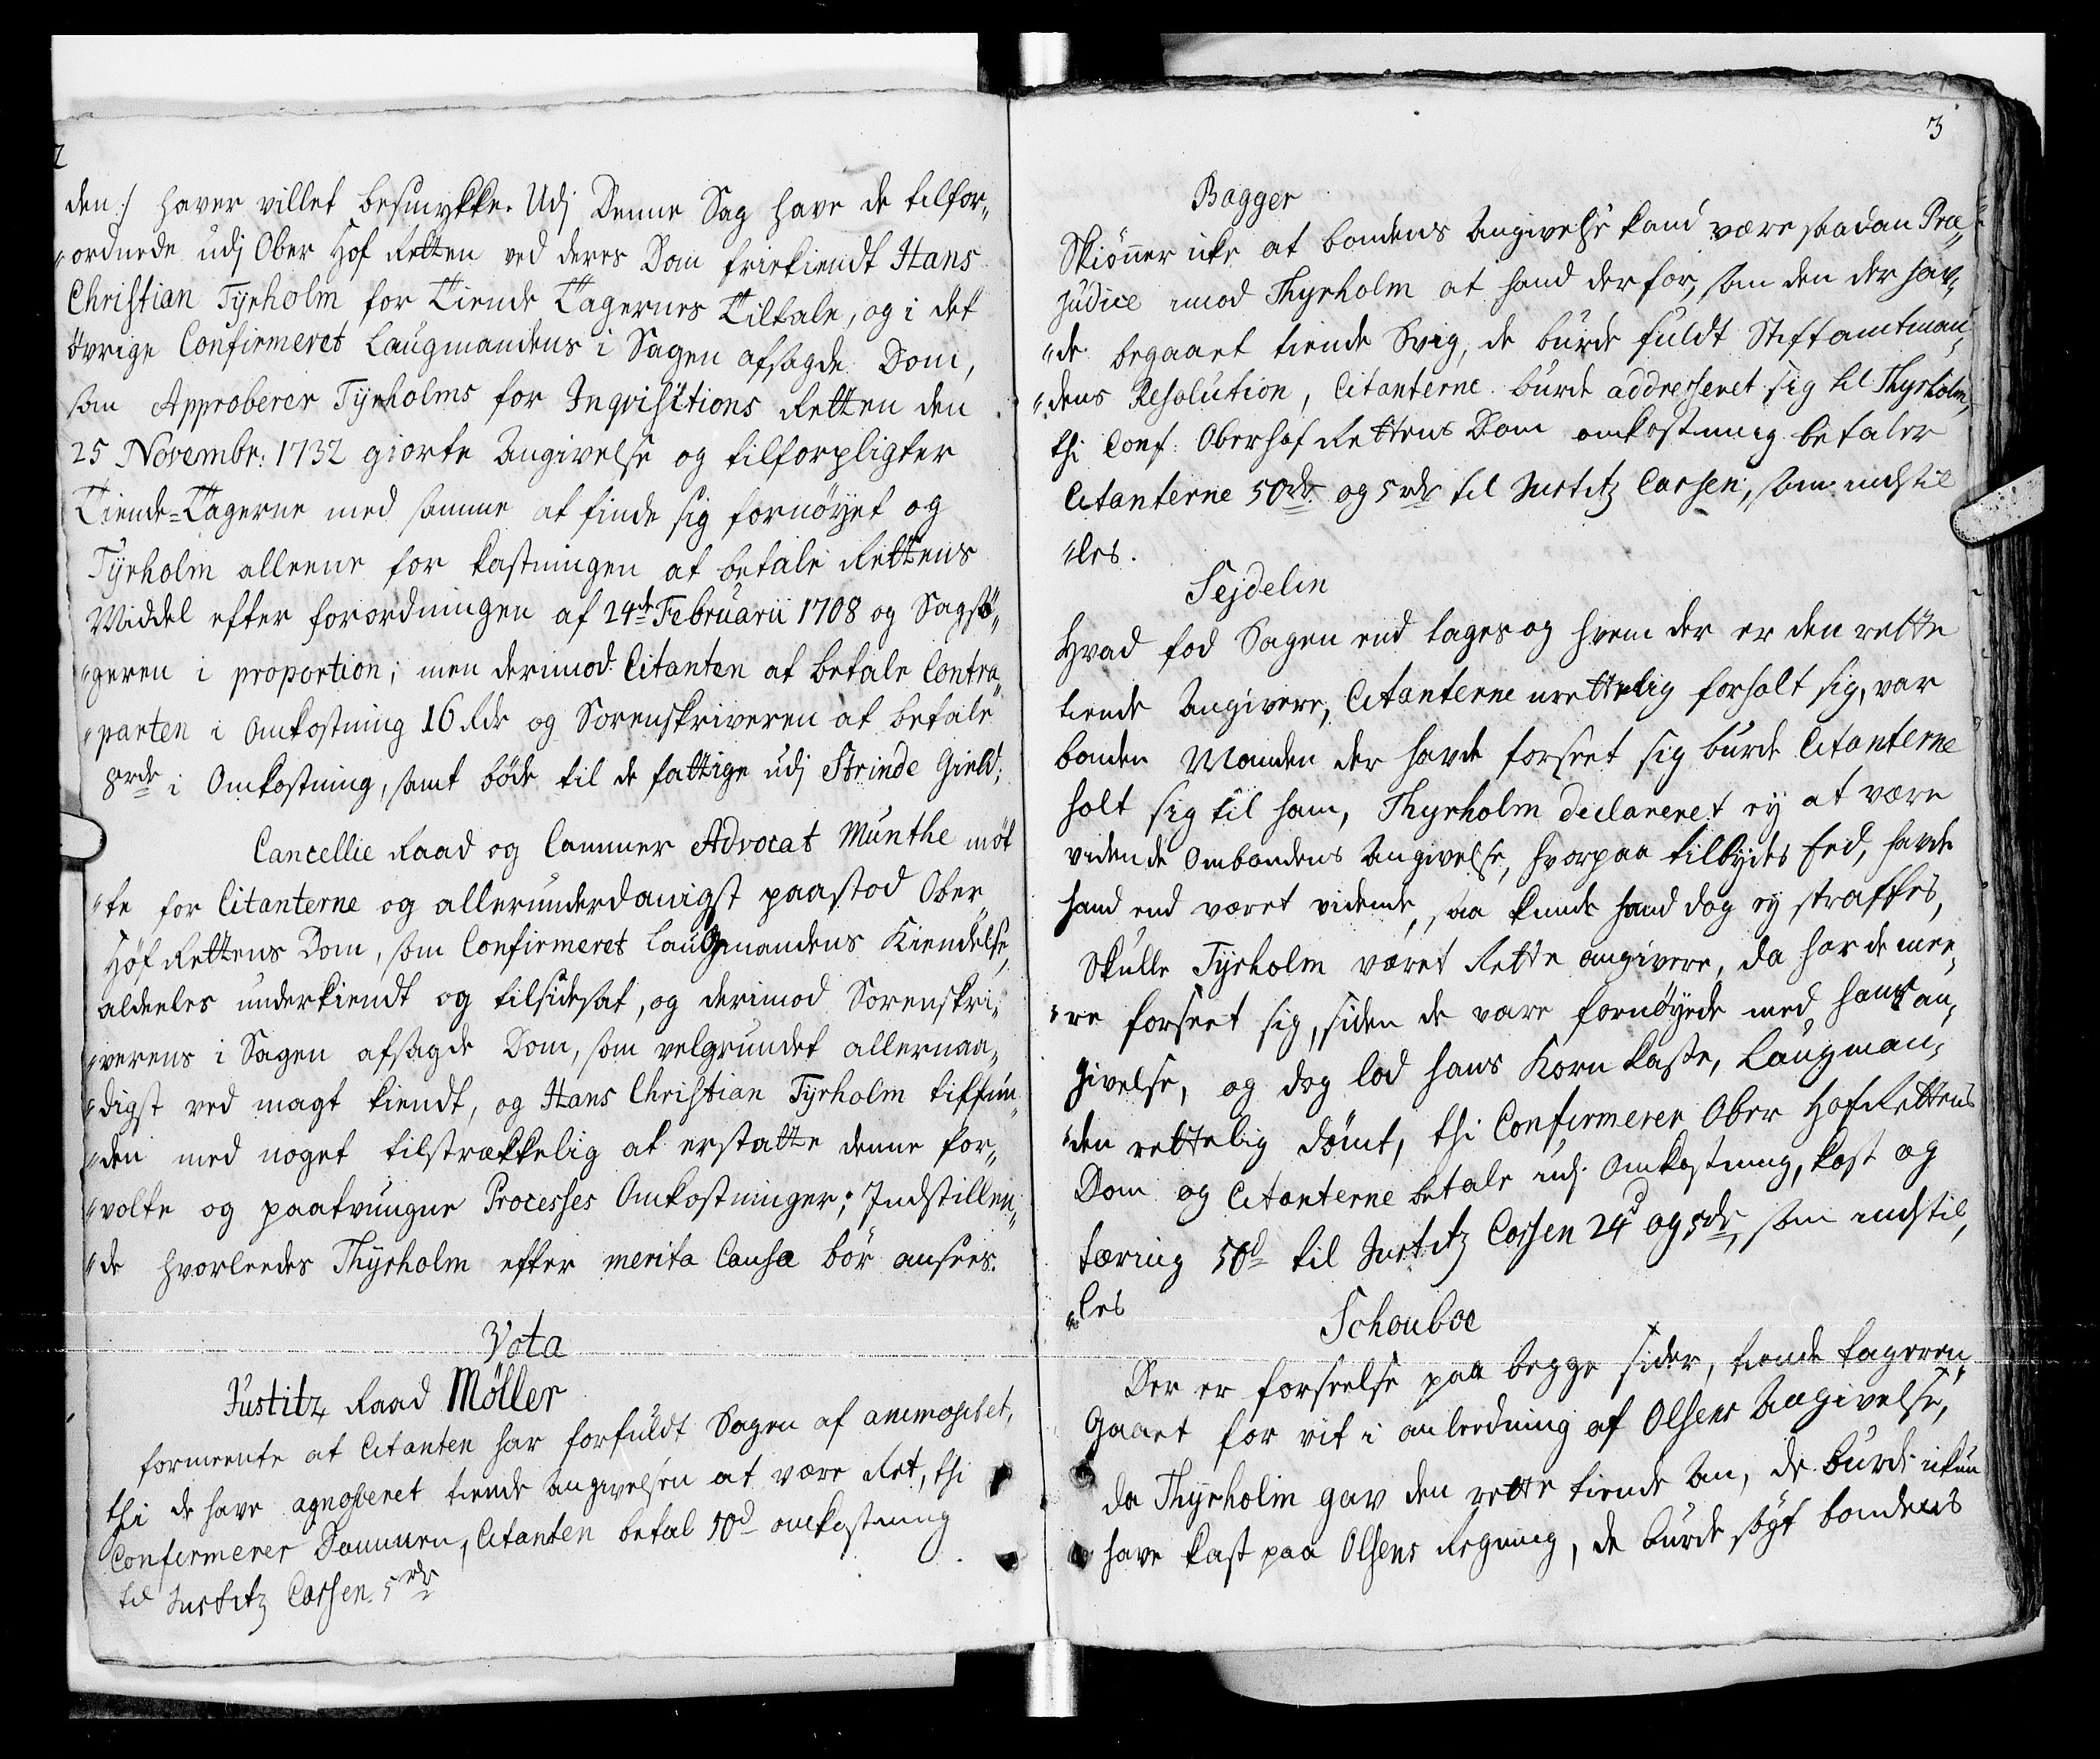 2
den :/ haver villet besmykke. Udj Denne Sag have de tilfor„
„ordnede udj Ober Hof Retten ved deres Dom friekiendt Hans
Christian Tÿrholm for Tiende Tagernes Tiltale, og i det
övrige Confirmeret Laugmandens i Sagen afsagde Dom,
som Approberer Tÿrholms for Inqvisitions Retten den
25 Novembr: 1732 giorte Angivelse og tilforpligter
Tiende-Tagerne med samme at finde sig fornöyet og
Tÿrholm alleene for kastningen at betale Rettens
Middel efter forordningen af 24de Februarii 1708 og Sagsö„
„geren i proportion; men derimod Citanten at betale Contra„
„parten i Omkostning 16 Rdr og Sorenskriveren at betale
8rdr i Omkostning, samt böde til de fattige udj Strinde Gield;
Cancellie Raad og Cammer Advocat Munthe möt
„te for Citanterne og allerunderdanigst paastod Ober
Hof Rettens Dom, som Confirmeret Laugmandens Kiendelse,
aldeeles underkiendt og tilsidesat, og derimod Sorenskri„
„verens i Sagen afsagde Dom, som velgrundet allernaa„
„digst ved magt kiendt, og Hans Christian Tÿrholm tilfun„
„den med noget tilstrækkelig at erstatte denne for„
„volte og paatvungne Processes Omkostninger; Indstillen„
„de hvorleedes Thÿrholm efter merita Causæ bör ansees.
Vota
Justitz Raad Möller
formeente at Citanten har forfuldt Sagen af animositet,
thi de have agnosceret tiende Angivelsen at være Ret, thi
Confirmerer Dommen, Citanten betal 50d omkostning
til Justitz Cassen 5rdr
3
Bagger
Skiönner icke at bondens Angivelse kand være saadan Præ„
judice imod Thyrholm at hand derfor, som den der hav„
„de begaaet tiende Svig, de burde fuldt Stiftamtman„
„dens Resolution, Citanterne burde addresseret sig til Thyrholm,
thi Conf. Oberhof Rettens Dom omkostning betaler
Citanterne 50rdr og 5rdr til Justitz Cassen, som indstil
„les.
Sejdelin
Hvad fod Sagen end tages og hvem der er den rette
tiende Angivere, Citanterne urettelig forholt sig, var
bonden Manden der havde forseet sig burde Citanterne
holt sig til ham, Thyrholm declareret ey at være
vidende Ombondens Angivelse, hvorpaa tilbydes Eed, havde
hand end været vidende, saa kunde hand dog ey straffes,
Skulle Tÿrholm været Rette angivere, da har de mee„
„re forseet sig, siden de vare fornöyede med hans an„
givelse, og dog lod hans Korn kaste, Laugman„
„den rettelig dömt, thi Confirmerer Ober Hof Rettens
Dom og Citanterne betale udj Omkostning, kost og
tæring 50d til Justitz Cassen 24d og 5dr, som indstil„
„les
Schouboe
Der er forseelse paa begge sider, tiende tageren„
Gaaet for vit i anleedning af Olsens Angivelse,
da Thÿrholm gav den rette tiende An, de burde ikun
have kast paa Olsens Regning, de burde sögt bondens